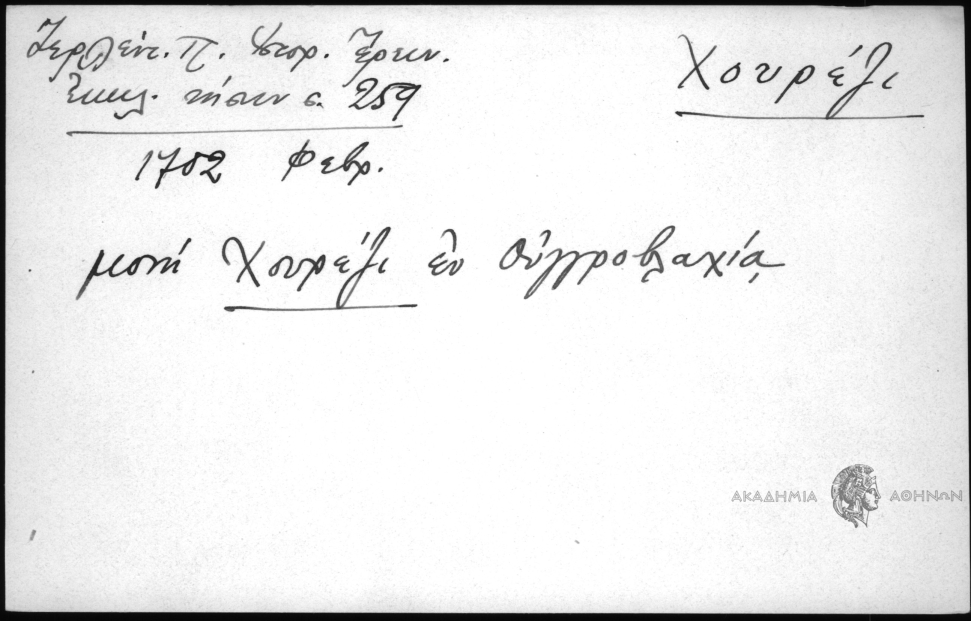 Ζερλέντ. Π. Ἱστορ. Ἔρευν.
Ἐκκλ. νήσων σ. 259
Χουρέζι
1702 Φεβρ.
μονή Χουρέζι ἐν Οὑγγροβλαχίᾳ
ΑΚΑΔΗΜΙΑ ΑΘΗΝΩΝ